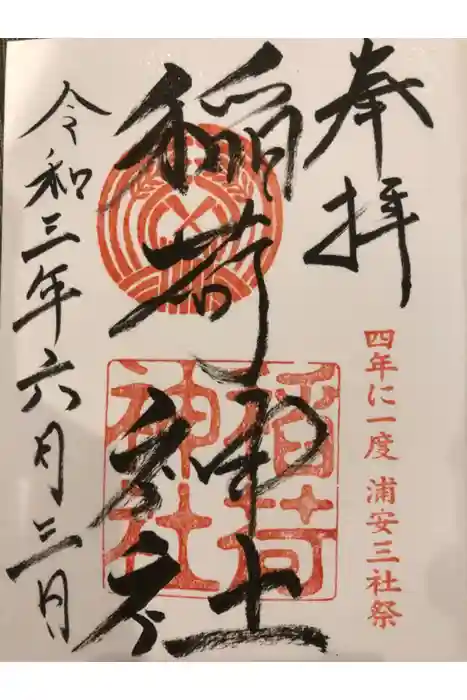 奉拝
四年に一度 浦安三社祭
稲荷神社
稲荷
神社
令和三年六月三日